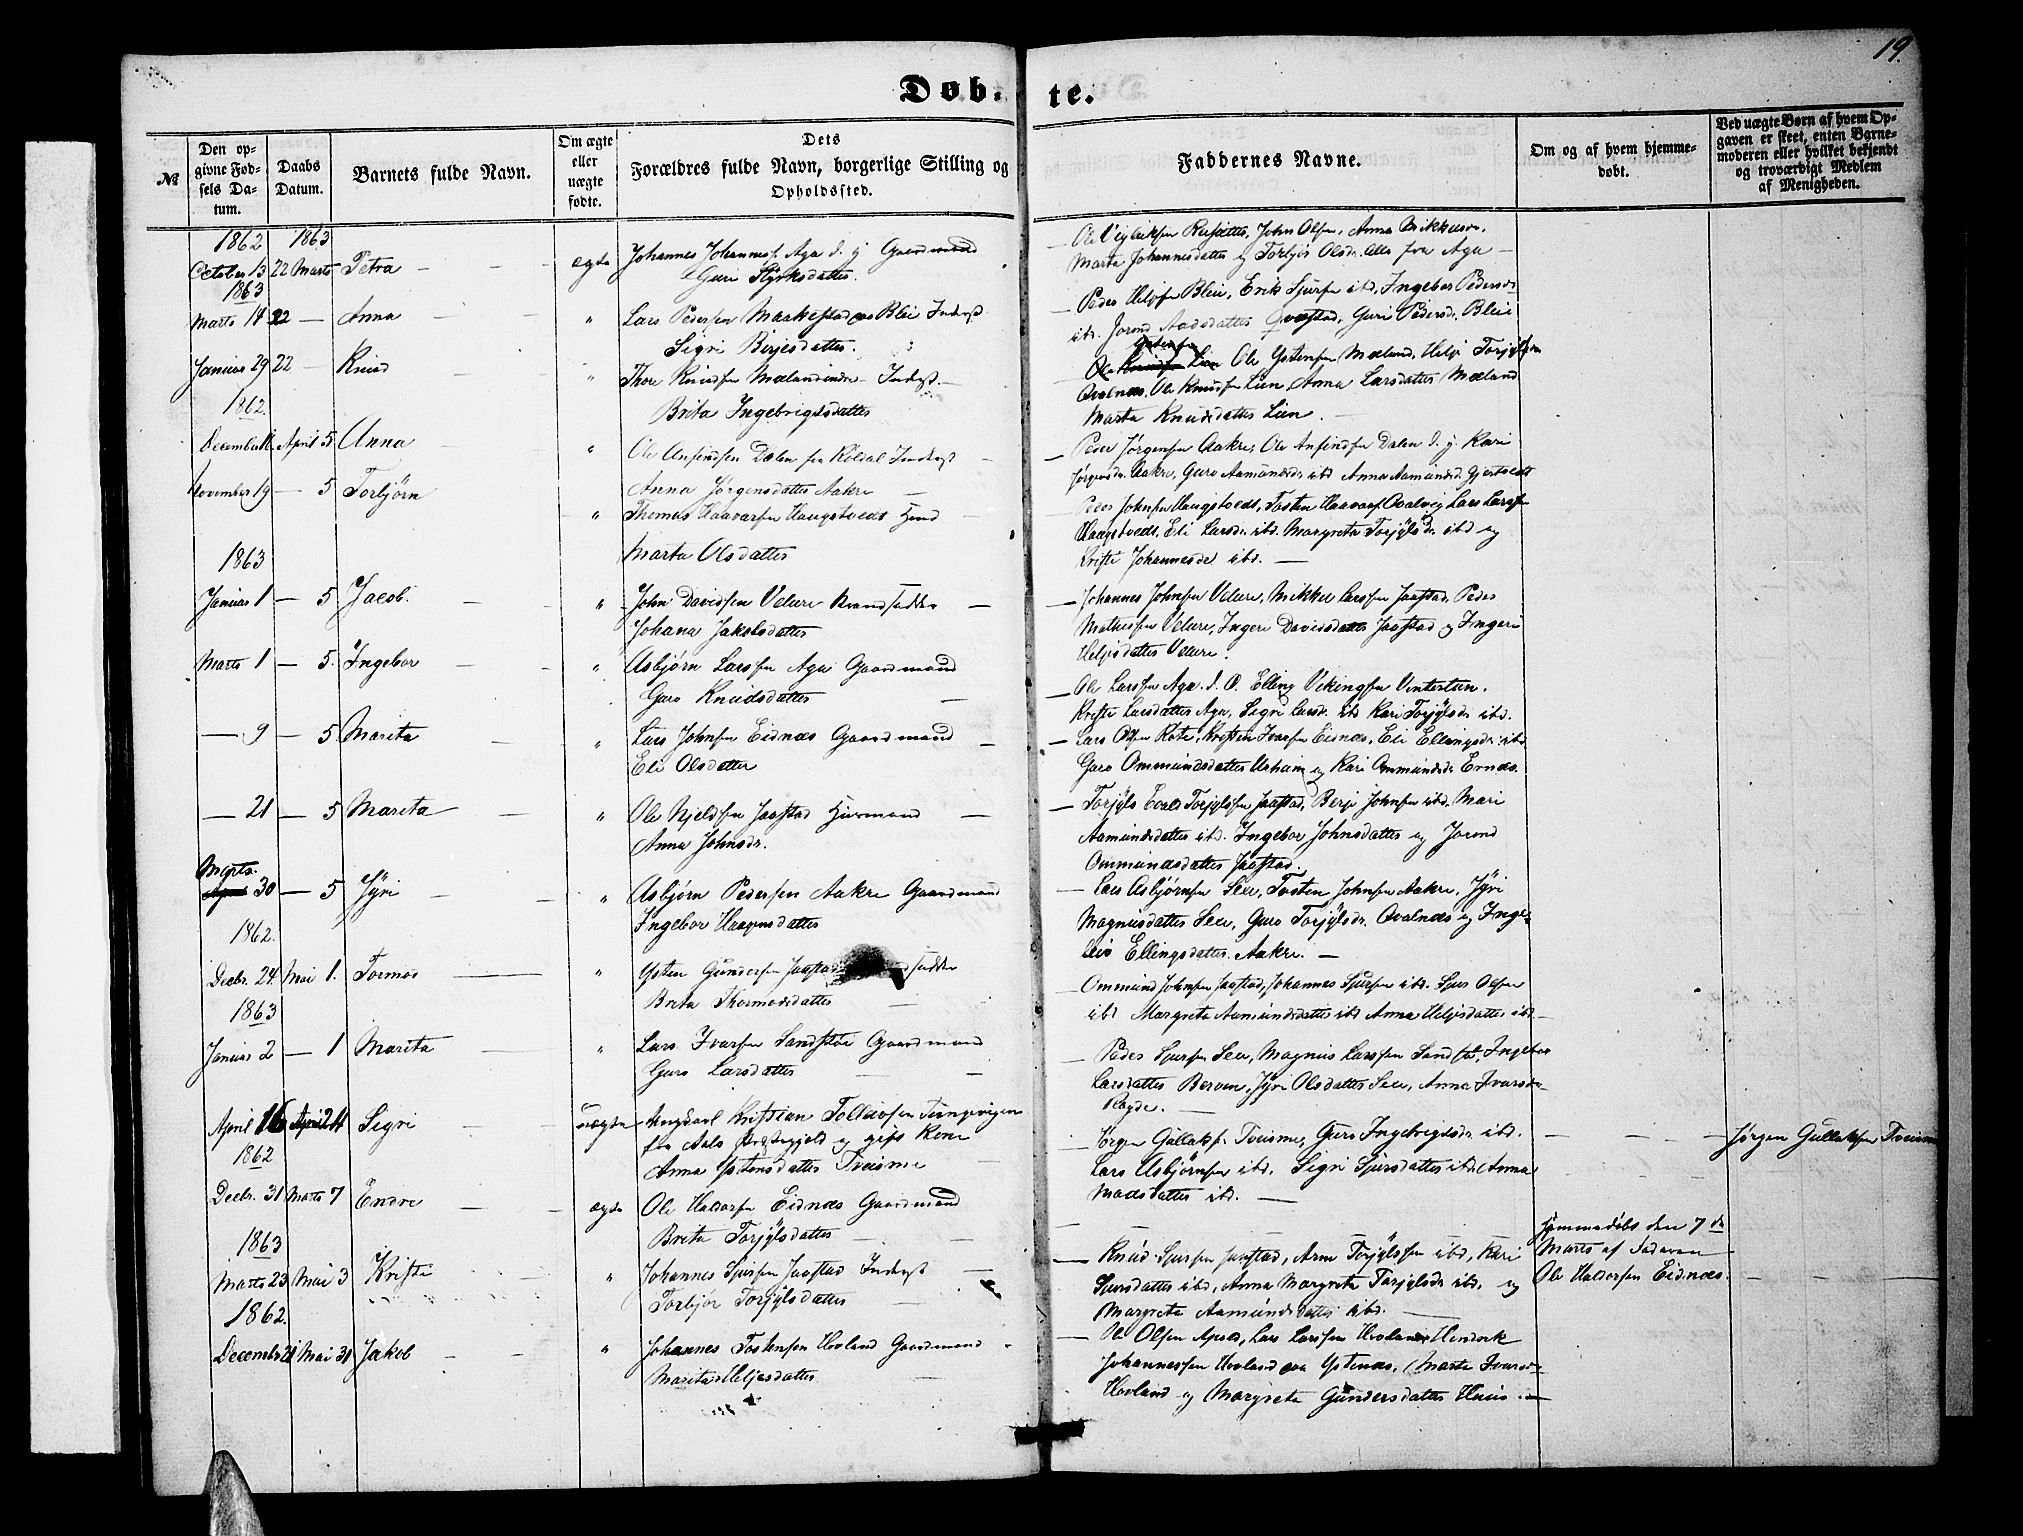 19.
Døb- te.
№
Den op-
givne Fød-
sels Da-
tum.
Daabs
Datum.
Barnets fulde Navn.
Om ægte
eller
uægte
fødte.
Dets
Forældres fulde Navn, borgerlige Stilling og
Opholdssted.
Faddernes Navne.
Om og af hvem hjemme-
døbt.
Ved uægte Børn af hvem Op-
gaven er skeet, enten Barne-
moderen eller hvilket bekjendt
og troværdigt Medlem
af Menigheden.
1862 1863
October 13 22 Marts Petra ægte Johannes Johannesf. Aga d. y Gaardmand
Guri Styrksdatter.
Johan Olsen, Anna
Marta Johannesdatter og Torbjør Olsdr. Alle fra Aga
1863
Marts 14 22 Anna " Lars Pedersen Maakestad Bleie Inderst
Sigri Birjesdatter.
Peder Bleie, Erik Sjursen ibd, Ingebor Pedersdr
ibd. Jorond Aadsdatter Qvestad, Guri Pedersd. Bleie
Januar 29 22 Knud " Thore Knudsen Mælandindre Inderst
Brita Ingebrigtsdatter
Ole Ystensen Mæland, Helje Torjylsen
Qvalnæs, Ole Knudsen Lien, Anna Larsdatter Mæland
Marta Knudsdatter Lien.
1862.
December 16. April 5 Anna " Ole Ansindsen Dalen fra Røldal Inderst
Anna Jørgensdatter Aakre
Peder Jørgensen Aakre, Ole Anfindsen Dalen d. y. Kari
Jørgensdr. Aakre, Guro Aamundsdr ibd Anna Aamundsd Gjerstvedt
November 19 5 Torbjørn " Thomas Haavarsen Haugstvedt Huusmd
Marta Olsdatter
Peder Johnsen Haugstvedt, Tosten Haavarf Qvalvig Lars Larsen
Haugstvedt, Eli Larsdr. ibd. Margreta Torjylsdr ibd og
Kriste Johannesdr ibd.
1863
Januar 1 5 Jacob. " John Davidsen Velure
Johana Jakobsdatter
Johannes Johnsen Velure, Mikkel Larssen Jaastad, Peder
Mathesen Velure, Ingeri Davidsdatter Jaastad og Ingeri
Heljesdatter Velure.
Marts 1 5. Ingebor " Asbjørn Larssen Aga Gaardmand
Guro Knudsdatter
Ole Larssen Aga. d. e. Elling Vikingsen Vintertun.
Kriste Larsdatter Aga, Sigri Larsdr. ibd Kari Torjylsdr ibd.
9 5 Marita " Lars Johnsen Eidnæs Gaardmand
Eli Olsdatter
Lars Olsen Rote, Kristen Ivarsen Eidnæs, Eli Ellingsdr ibd
Guro Ommundsdatter Urham og Kari Ommundsdr Ernæs.
21 5 Marita " Ole Njeldsen Jaastad Huusmand
Anna Johnsdr.
Torjyls Evald Torjylssen Jaastad, Berje Johnsen ibd. Mari
Aamundsdatter ibd. Ingebor Johnsdatter og Jorond
Ommundsdatter Jaastad.
Marts.
30 5 Jyri " Asbjørn Pedersen Aakre Gaardmand
Ingebor Haagensdatter
Lars Asbjørnsen Sexe, Tosten Johnsen Aakre, Jyri
Magnusdatter Sexe, Guro Torjylsdr. Qvalnæs og Inge-
Ellingsdatter. Aakre.
1862.
Decbr. 24. Mai 1. Tormod " Ysten Gundersen Jaastad
Brita Thormodsdatter
Ommund Johnsen Jaastad, Johannes Sjursen ibd. Sjur Olsen
ibd Margreta Aamundsdatter ibd Anna Heljesdatter ibd
1863
Januar 2 1 Marita " Lars Ivarsen Sandstøe Gaardmand
Guro Larsdatter
Peder Sjursen Sexe, Magnus Larssen Sandstø, Ingebor
Larsdatter Berven, Jyri Olsdatter Sexe, Anna Ivarsdr
Rogde.
April 16 April 24 Sigri uægte Ungkarl Kristian Tolleivsen
fra Aals Præstegjeld og gift Kone
Anna Ystensdatter Tveisme
Jørgen Gullaksf. Tveisme, Guro Ingebrigtsdr. ibd.
Lars Asbjørnsen ibd. Sigri Sjursdatter ibd. Anna
Madsdatter ibd.
Jørgen Gullaksen Tveisme
1862
Decbr. 31 Marts 7 Endre ægte Ole Haldorsen Eidnæs Gaardmand
Brita Torjylsdatter
Hjemmedøbt den 7de
Marts af Faderen
Ole Haldorsen Eidnæs.
1863
Marts 23 Mai 3 Kriste " Johannes Sjursen Jaastad Inderst
Torbjør Torjylsdatter
Knud Sjursen Jaastad, Arne Torjylssen ibd, Kari
Sjursdatter ibd, Anna Margreta Torjylsdr ibd. og
Margreta Aamundsdatter ibd.
1862.
Decembr 21 Mai 31 Jakob " Johannes Tostensen Hovland Gaardmand
Marita Heljesdatter
Ole Olsen Apold, Lars Larssen Hovland Hendrik
Johannessen Hovland Ystenæs, Marta Ivarsdr
Hovland og Margreta Gundersdatter Huus.